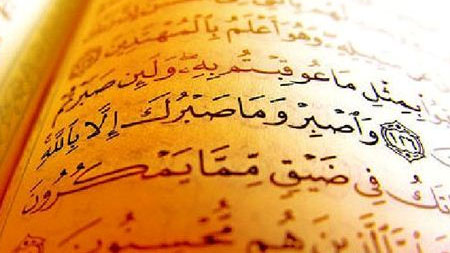 سَبِيلِهِۦ وَهُوَ أَعْلَمُ بِالْمُهْتَدِينَ
بِمِثْلِ مَا عُوقِبْتُم بِهِۦ ۖ وَلَئِن صَبَرْتُمْ
١٢٦ وَاصْبِرْ وَمَا صَبْرُكَ إِلَّا بِاللَّهِ
تَكُ فِى ضَيْقٍ مِّمَّا يَمْكُرُونَ
وَّالَّذِينَ هُم مُّحْسِنُونَ